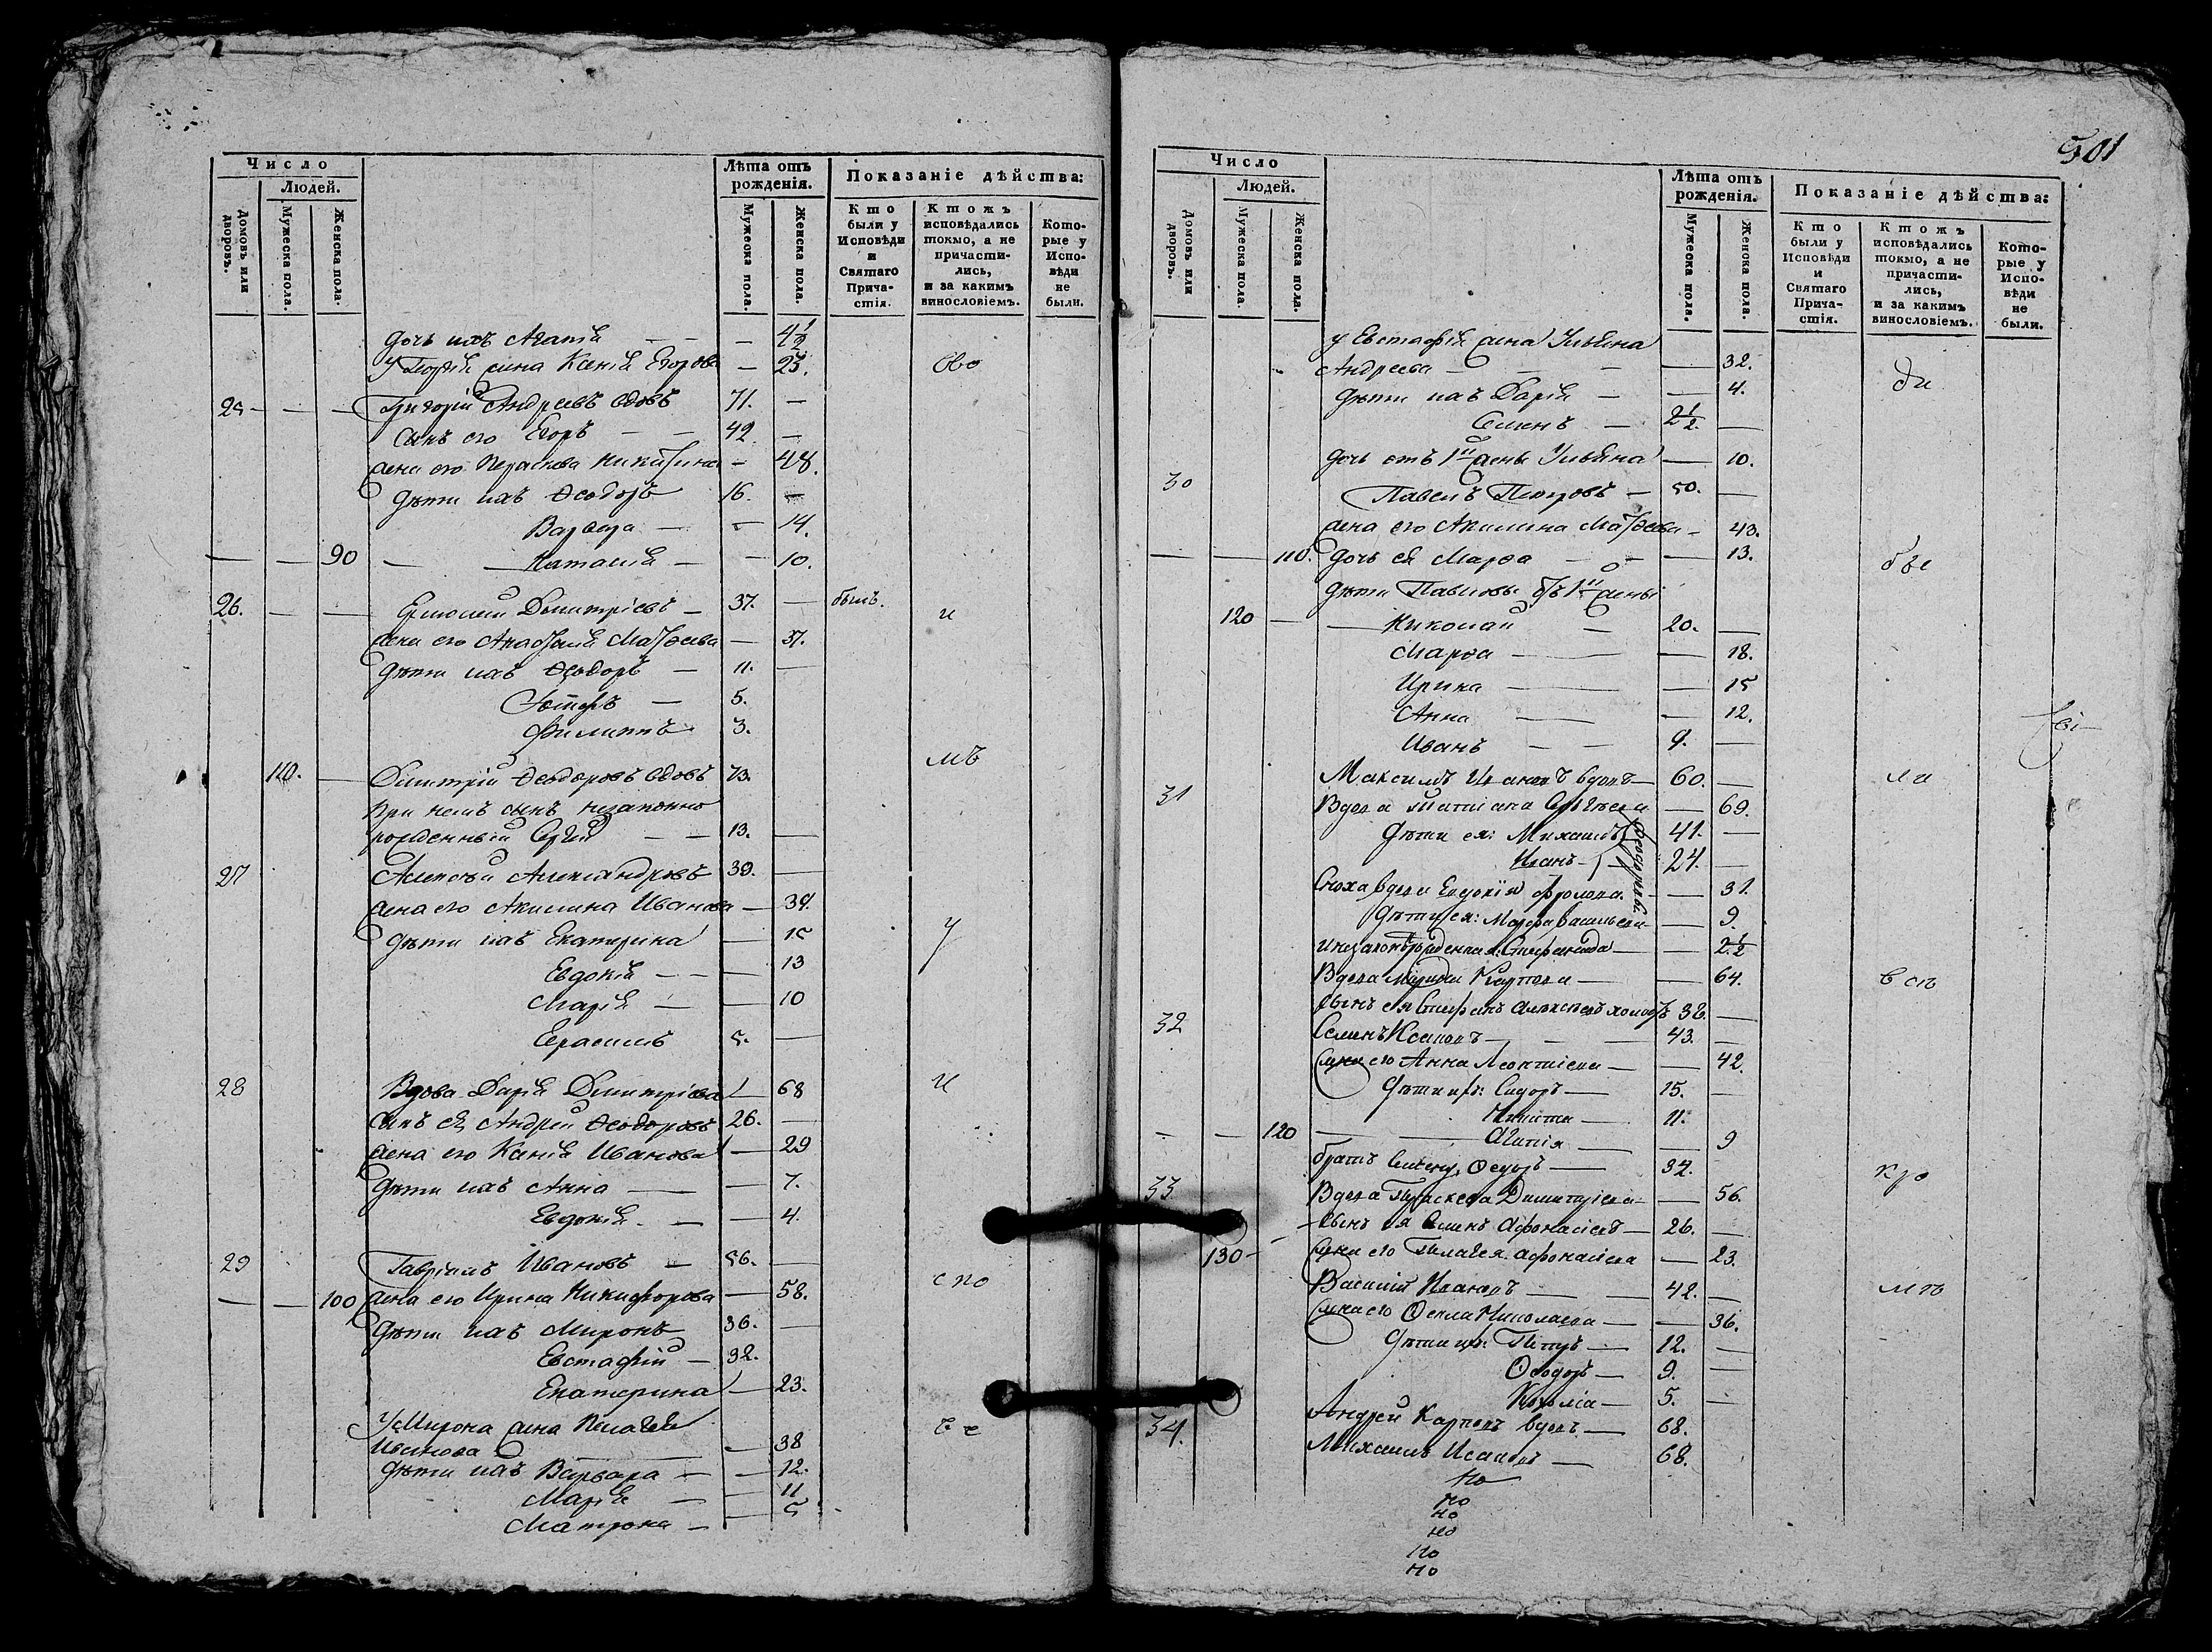 Число
Людей.
Домовъ или дворовъ.
Мужеска пола.
Женска пола.
Лѣта отъ рожденія.
Мужеска пола.
Женска пола.
Показаніе дѣйства:
Кто были у Исповѣди и Святаго Прича-стія.
Ктожъ исповѣдались токмо, а не причасти-лись, и за какимъ винословіемъ.
Кото-рые у Испо-вѣди не были.
дочь ихъ Агапія — — 4½
У Георгія жена Ксенія Егорова — 23.
25 — — — Григорій Андреевъ вдовъ 71. —
сынъ его Егоръ — — 42. —
жена его Параскева Никитина — 48.
дѣти ихъ Ѳеодоръ 16. —
Варвара — — 14.
— — 90 — — Наталія — — 10.
26. — — Димитріевъ — 37. — былъ. и
жена его Анастасія Матѳеева — 37.
дѣти ихъ Ѳеодоръ — 11. —
— 5.
Филиппъ 3.
мъ
110. — Димитрій Ѳеодоровъ вдовъ 73.
При немъ сынъ незаконно
рожденный Сергій — — 13. —
27 Алексѣй Александровъ 39. —
жена его Акилина Иванова — 39.
дѣти ихъ Екатерина — 15 у
Евдокія — — — 13
Марія — — 10
Герасимъ 5. —
28 Вдова Дарія Димитріева — 68 и
сынъ ея Андрей Ѳеодоровъ 26. —
жена его Ксенія Иванова — 29
дѣти ихъ Анна — — 7.
Евдокія — — 4.
29 Гавріилъ Ивановъ — 56. —
— — 100 жена его Ирина Никифорова — 58.
дѣти ихъ Миронъ 36. —
Евстафій — 32.
Екатерина — 23.
У Мирона жена Пелагія
Иванова — 38
дѣти ихъ Варвара — — 12.
Марія — — 11
Матрона — — 5
501
Число
Людей.
Домовъ или дворовъ.
Мужеска пола.
Женска пола.
Лѣта отъ рожденія.
Мужеска пола.
Женска пола.
Показаніе дѣйства:
Кто были у Исповѣди и Святаго Прича-стія.
Ктожъ исповѣдались токмо, а не причасти-лись, и за какимъ винословіемъ.
Кото-рые у Испо-вѣди не были.
у Евстафія жена Ульяна
Андреева — — — — 32.
дѣти ихъ Дарія — — 4.
Семенъ — 2½. —
дочь отъ 1й жены Ульяна — 10.
30 Павелъ Петровъ — 50. —
жена его Акилина Матѳеева — 43.
— — 110. дочь ея Марѳа — — — 13.
дѣти Павловы отъ 1й жены
120 — — Николай — 20. —
Марѳа — — 18.
Ирина — — 15
Анна — — 12.
Иванъ — — 9. —
Максимъ Ивановъ вдовъ — 60. —
31 Вдова Татіана Сергѣева — 69.
дѣти ея: Михаилъ 41. —
Иванъ — 24. —
Ѳеодоровы
Сноха вдова Евдокія Фролова — 31.
дѣти ея: Марѳа Васильева — 9.
и незаконнорожденная Стефанида — — 2½
Вдова Марина Карпова — — 64.
сынъ ея Стефанъ Алексѣевъ холостъ 36. —
32 Семенъ Исаковъ — — 43. —
жена его Анна Леонтіева — — 42.
дѣти ихъ: Сидоръ — 15. —
Никита — 11.
— — 120 — — Агапія — — 9
братъ Семену, Ѳедоръ — 34.
33. Вдова Параскева Димитріева — 56.
сынъ ея Семенъ Афонасіевъ — 26. —
130 — жена его Пелагея Афонасіева — 23.
Василій Ивановъ — — 42. —
жена его Ѳекла Николаева — — 36.
дѣти ихъ: Петръ — 12. —
Ѳеодоръ — 9. —
Козьма — 5. —
34. Андрей Карповъ вдовъ — 68.
Михаилъ Исаковъ — 68.